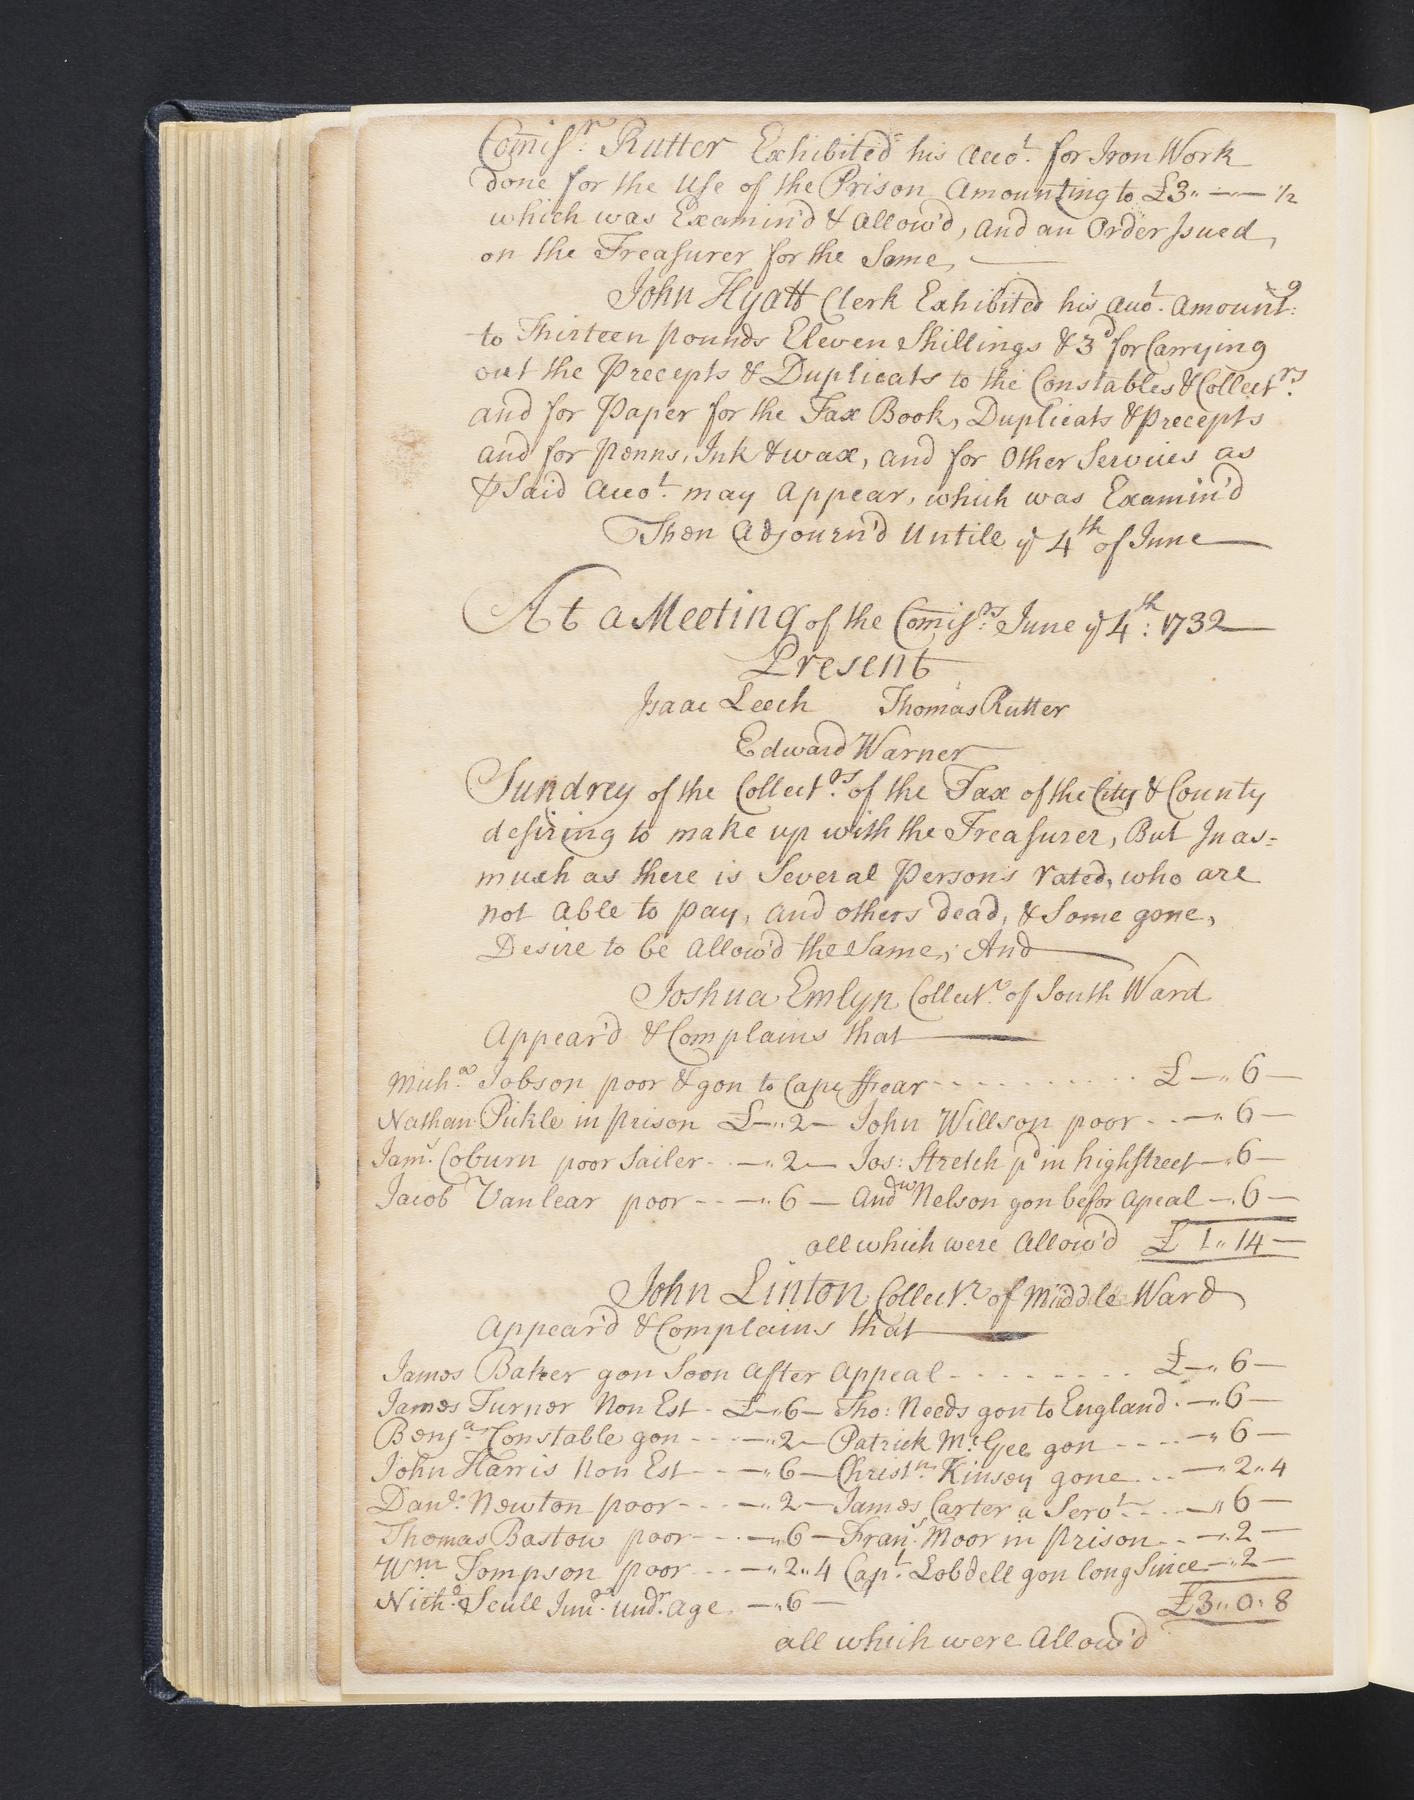 Comisr. Rutter Exhibited his Accot. for Iron Work
done for the Use of the Prison Amounting to £3"—"— ½
which was Examin'd & allow'd, and an Order Issued
on the Treasurer for the Same,
John Hyatt Clerk Exhibited his Accot. Amountg:
to Thirteen pounds Eleven Shillings & 3d for Carrying
out the Precepts & Duplicats to the Constables & Collectrs.
and for Paper for the Tax Book, Duplicats & Precepts
and for Penns, Ink & wax, and for Other Services as
⅌ Said Accot. may Appear, which was Examin'd
Then Adjourn'd Untile ye 4th of June
At a Meeting of the Comisrs. June ye 4th: 1732
Present
Isaac Leech Thomas Rutter
Edward Warner
Sundrey of the Collectrs. of the Tax of the City & County
desiring to make up with the Treasurer, But Inas-
much as there is Several Persons rated, who are
not Able to pay, and others dead, & Some gone,
Desire to be Allow'd the Same; And
Joshua Emlyn Collectr. of South Ward
Appear'd & Complains that
Micha. Jobson poor & gon to Cape ffear - - - £—"6—
Nathan Pickle in prison £—"2— John Willson poor - - —"6—
Jams. Coburn poor Sailer - - —"2— Jos: Stretch pd in highstreet—"6—
Jacob Vanlear poor - - —"6— Andw Nelson gon befor apeal—"6—
all which were Allow'd £1"14—
John Linton Collectr. of Middle Ward
Appear'd & Complains that
James Baker gon Soon After Appeal - - - £—"6—
James Turner Non Est - £—"6— Tho: Needs gon to England - —"6—
Benja. Constable gon - - - —"2— Patrick McGee gon - - - —"6—
John Harris Non Est - - —"6— Christn. Kinsey gone - - - —"2"4
Danl. Newton poor - - - —"2— James Carter a Servt. - - —"6—
Thomas Bastow poor - - - —"6— Frans. Moor in prison - - —"2—
Wm. Tompson poor - - - —"2"4 Capt. Lobdell gon long Since—"2—
Nicho. Scull Junr. undr. age —"6— £3"0"8
all which were Allow'd